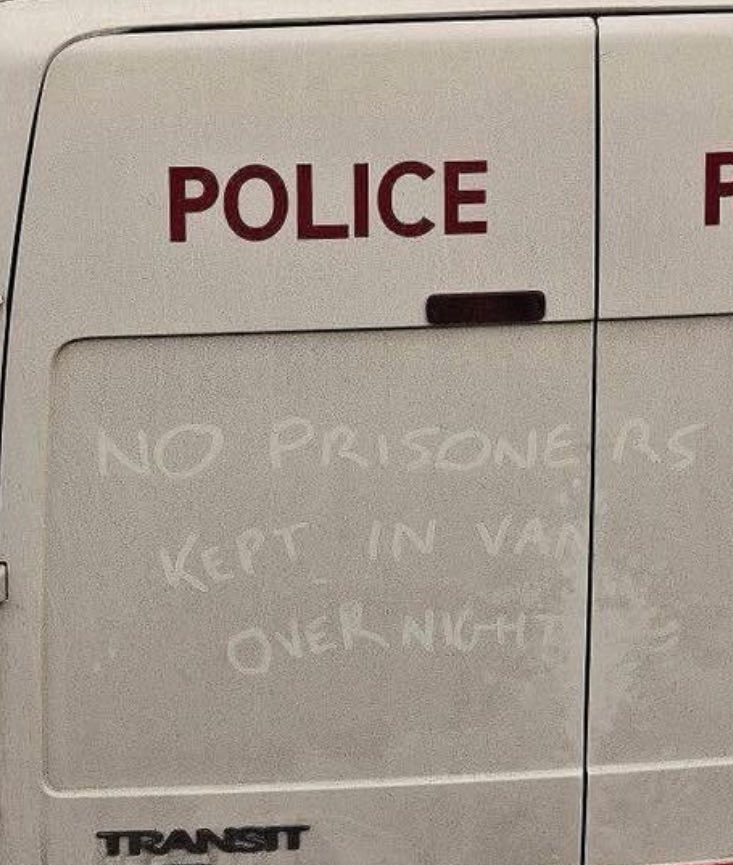 POLICE P
NO PRISONERS
KEPT IN VAN
OVERNIGHT
TRANSIT